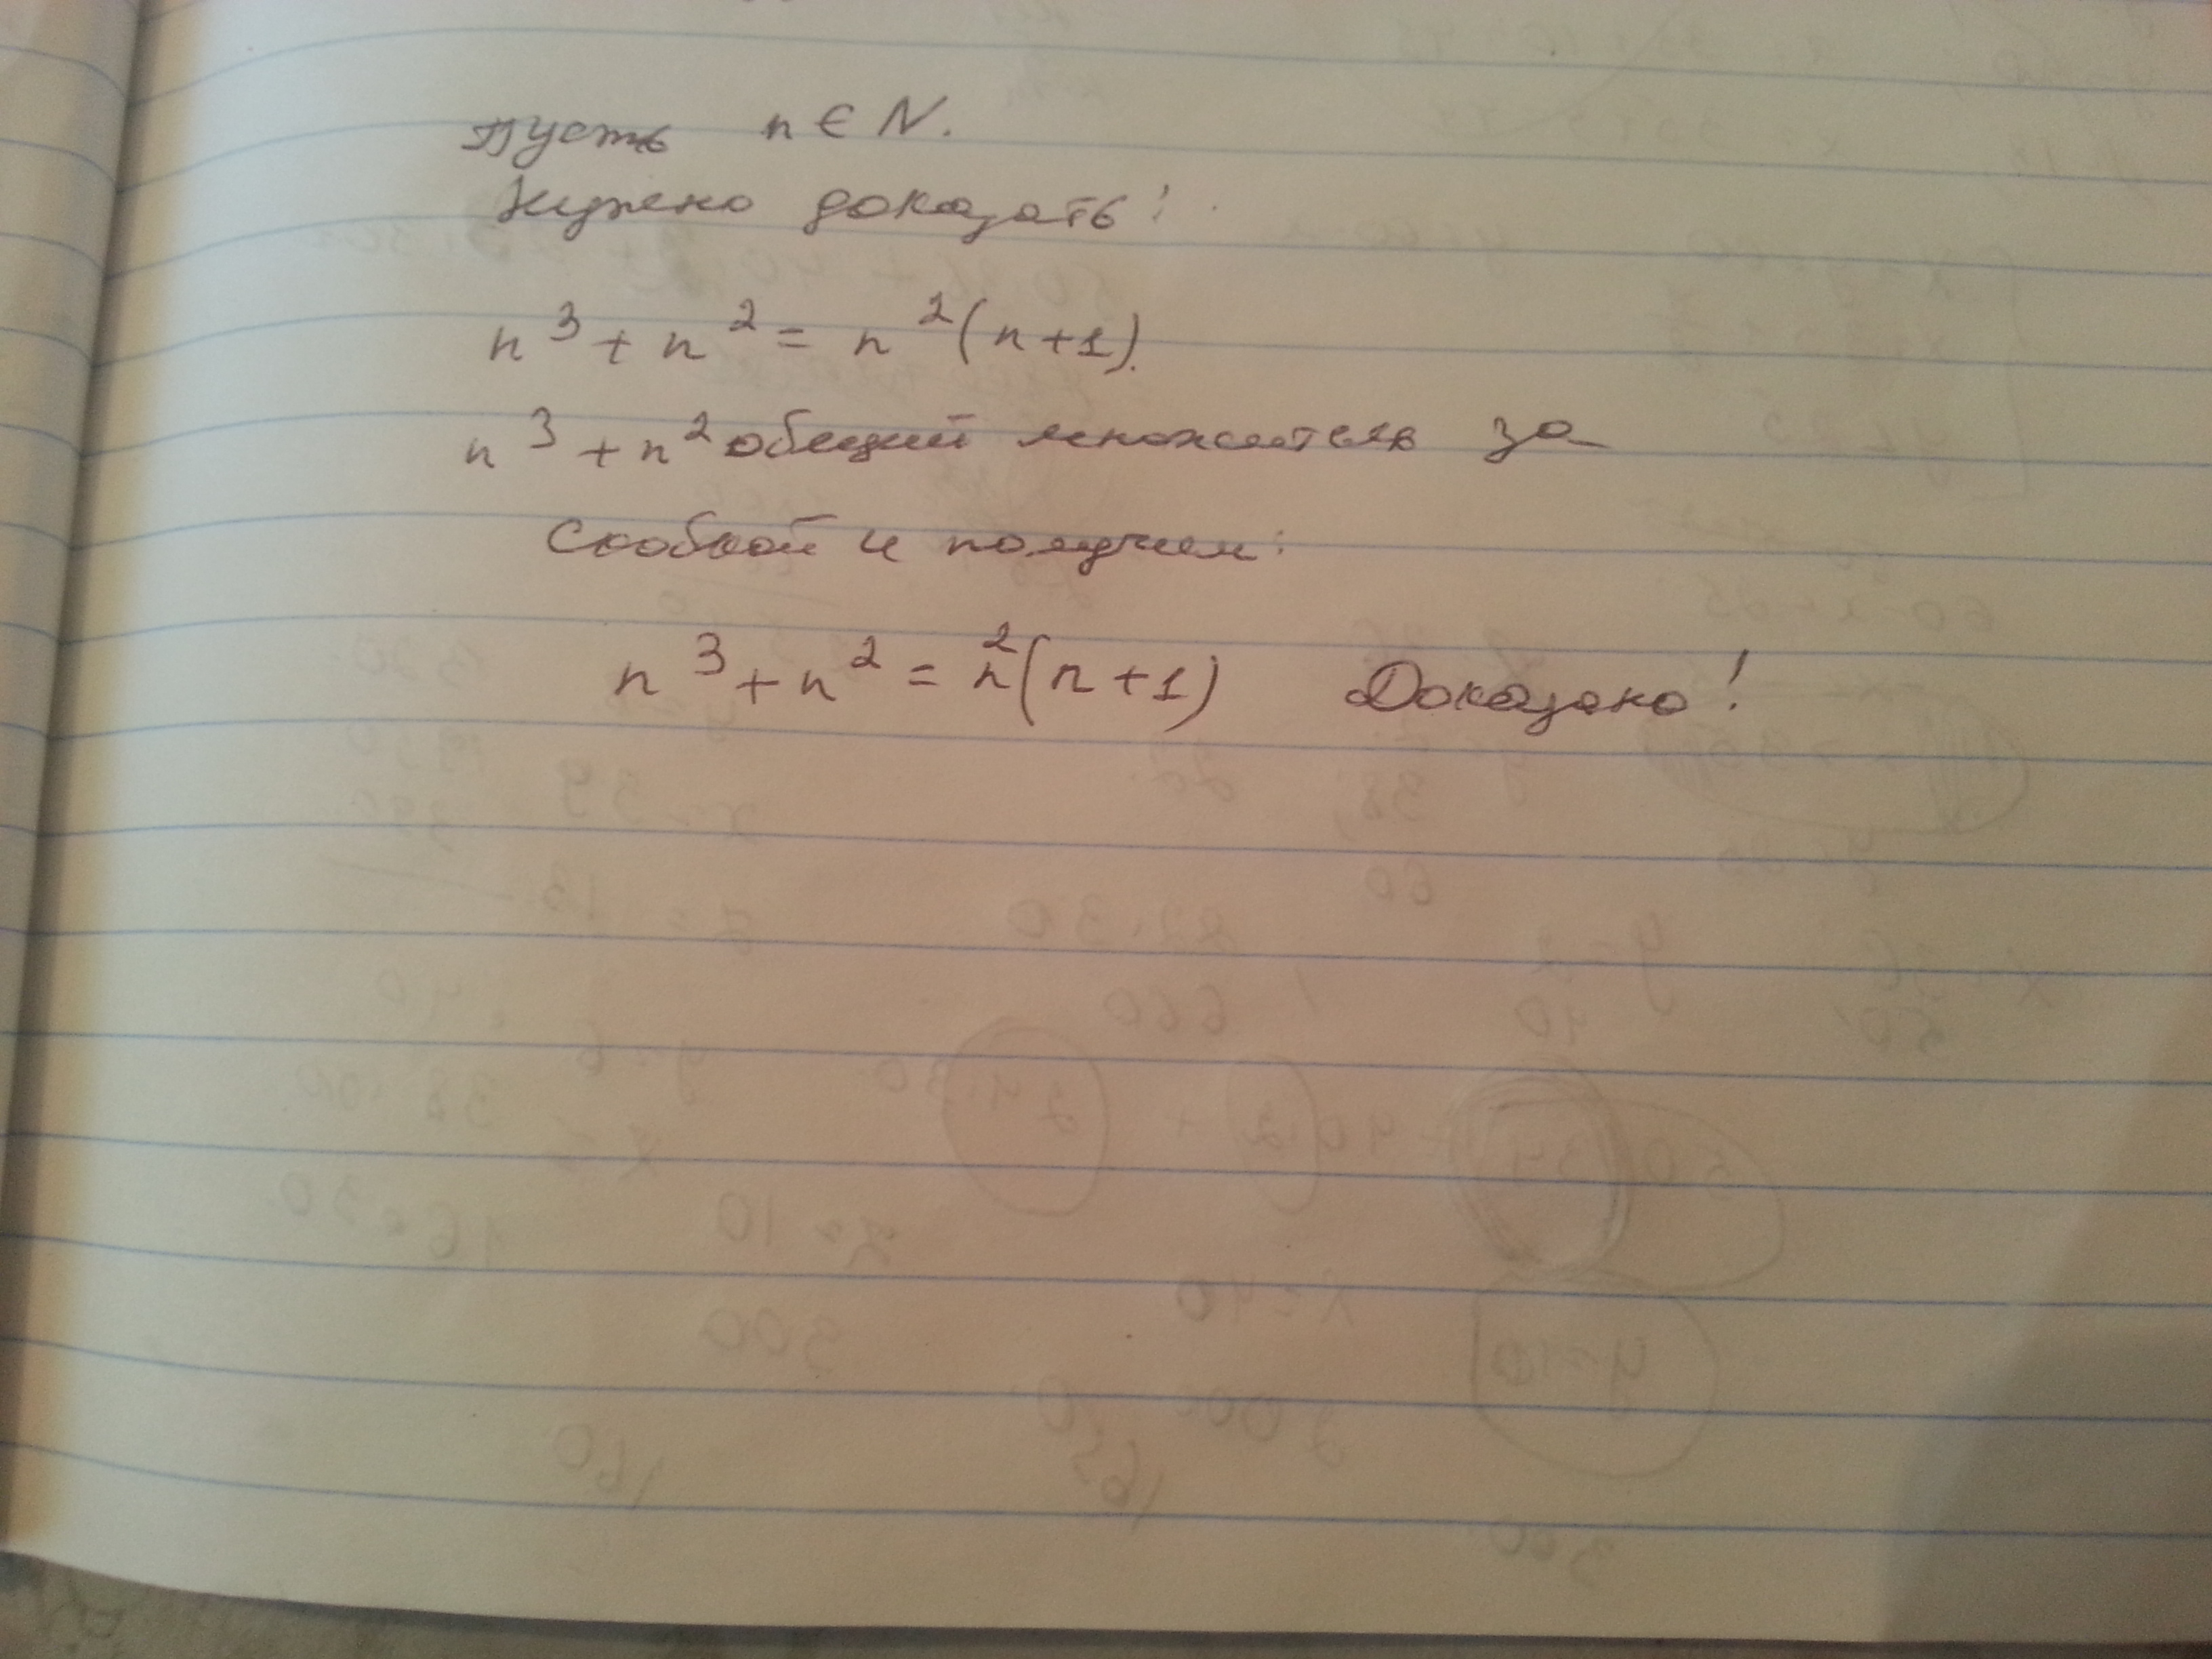 Пусть n ∈ N.
Нужно доказать:
n³ + n² = n²(n+1).
n³ + n² общий множитель за
скобкой и получим:
n³ + n² = n²(n+1) Доказано!